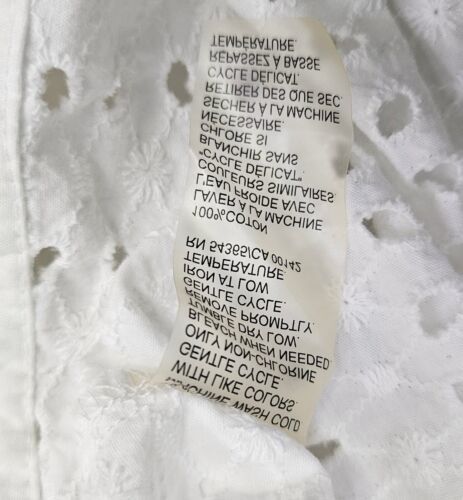 MACHINE WASH COLD
WITH LIKE COLORS.
GENTLE CYCLE.
ONLY NON-CHLORINE
BLEACH WHEN NEEDED
TUMBLE DRY LOW.
REMOVE PROMPTLY.
GENTLE CYCLE.
IRON AT LOW
TEMPERATURE.
RN 54365/CA 00142
100%COTON
LAVER À LA MACHINE
L'EAU FROIDE AVEC
COULEURS SIMILAIRES
"CYCLE DÉLICAT.
BLANCHIR SANS
CHLORE SI
NÉCESSAIRE.
SÉCHER À LA MACHINE
RETIRER DES QUE SEC.
CYCLE DÉLICAT.
REPASSEZ À BASSE
TEMPÉRATURE.